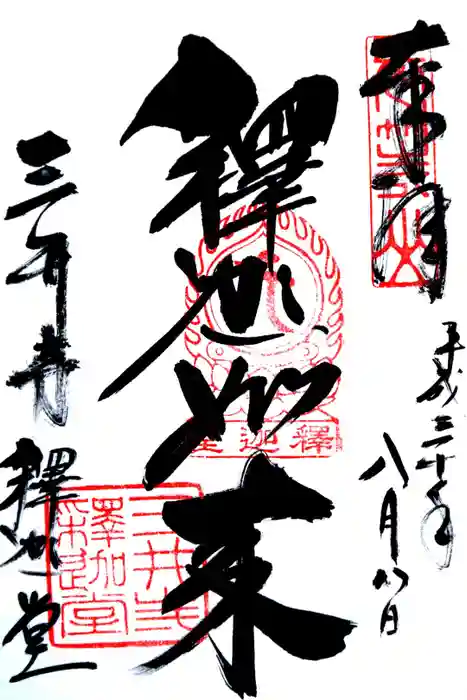 奉拝
平成三十年
八月八日
釋迦如来
釋迦堂
三井寺
釋迦堂
三井寺釋迦堂